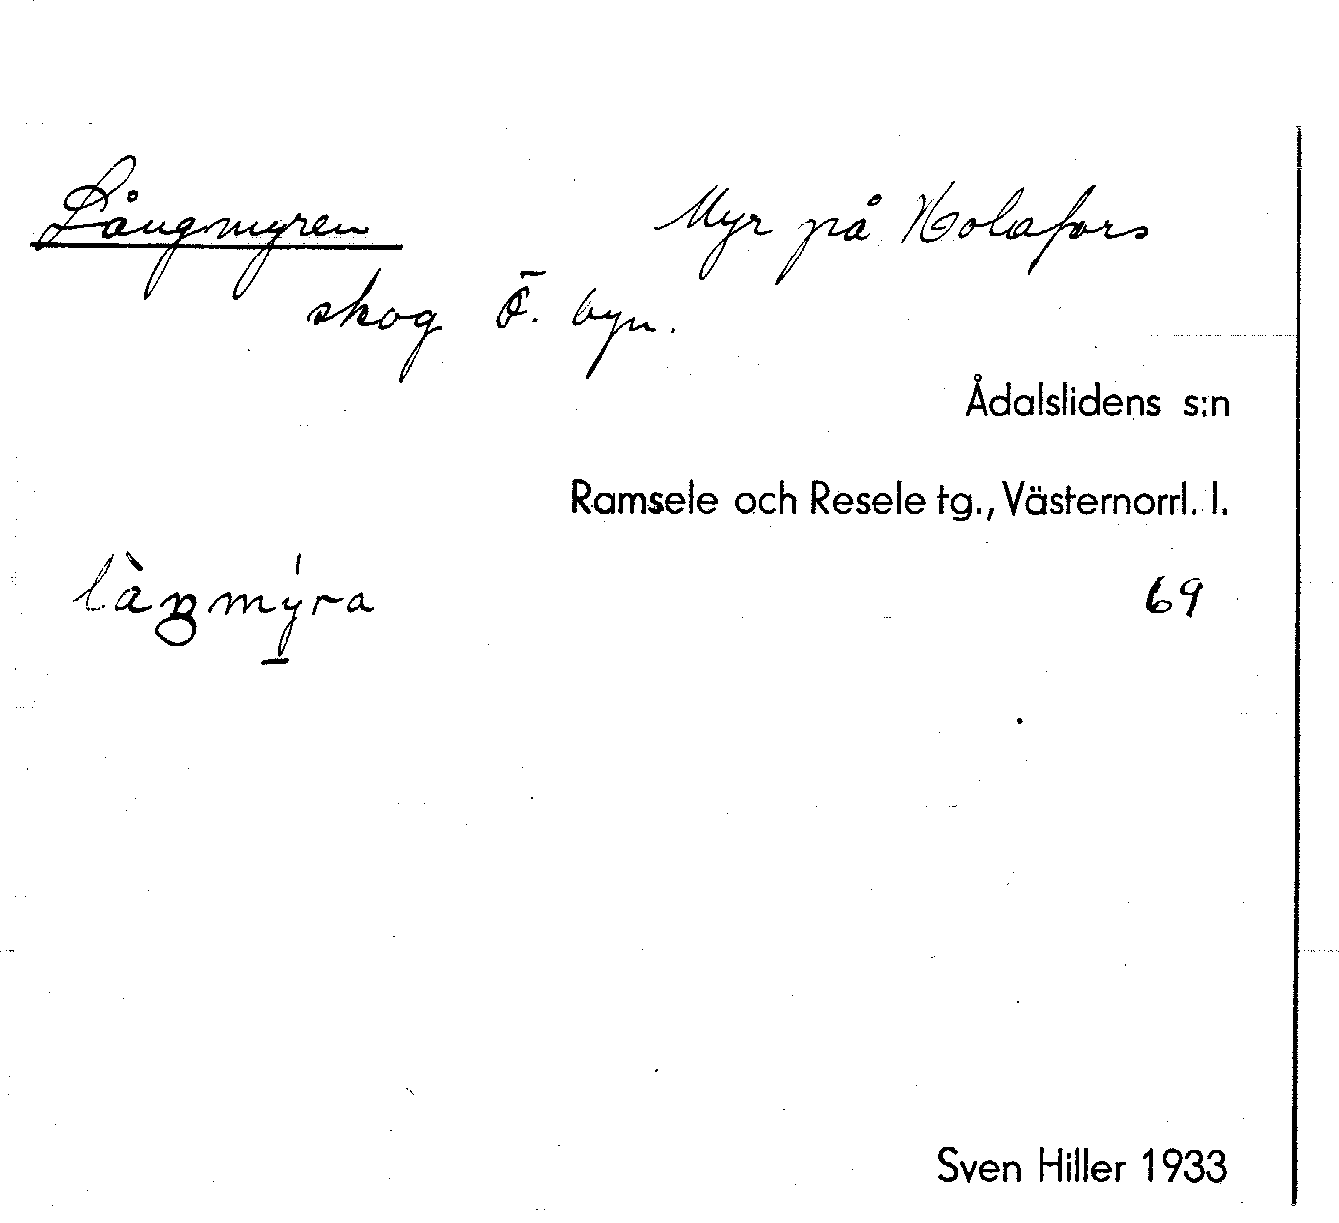 Långmyren Myr på Holafors
skog Ö. byn.
Ådalslidens s:n
Ramsele och Resele tg., Västernorrl. l.
69
Sven Hiller 1933